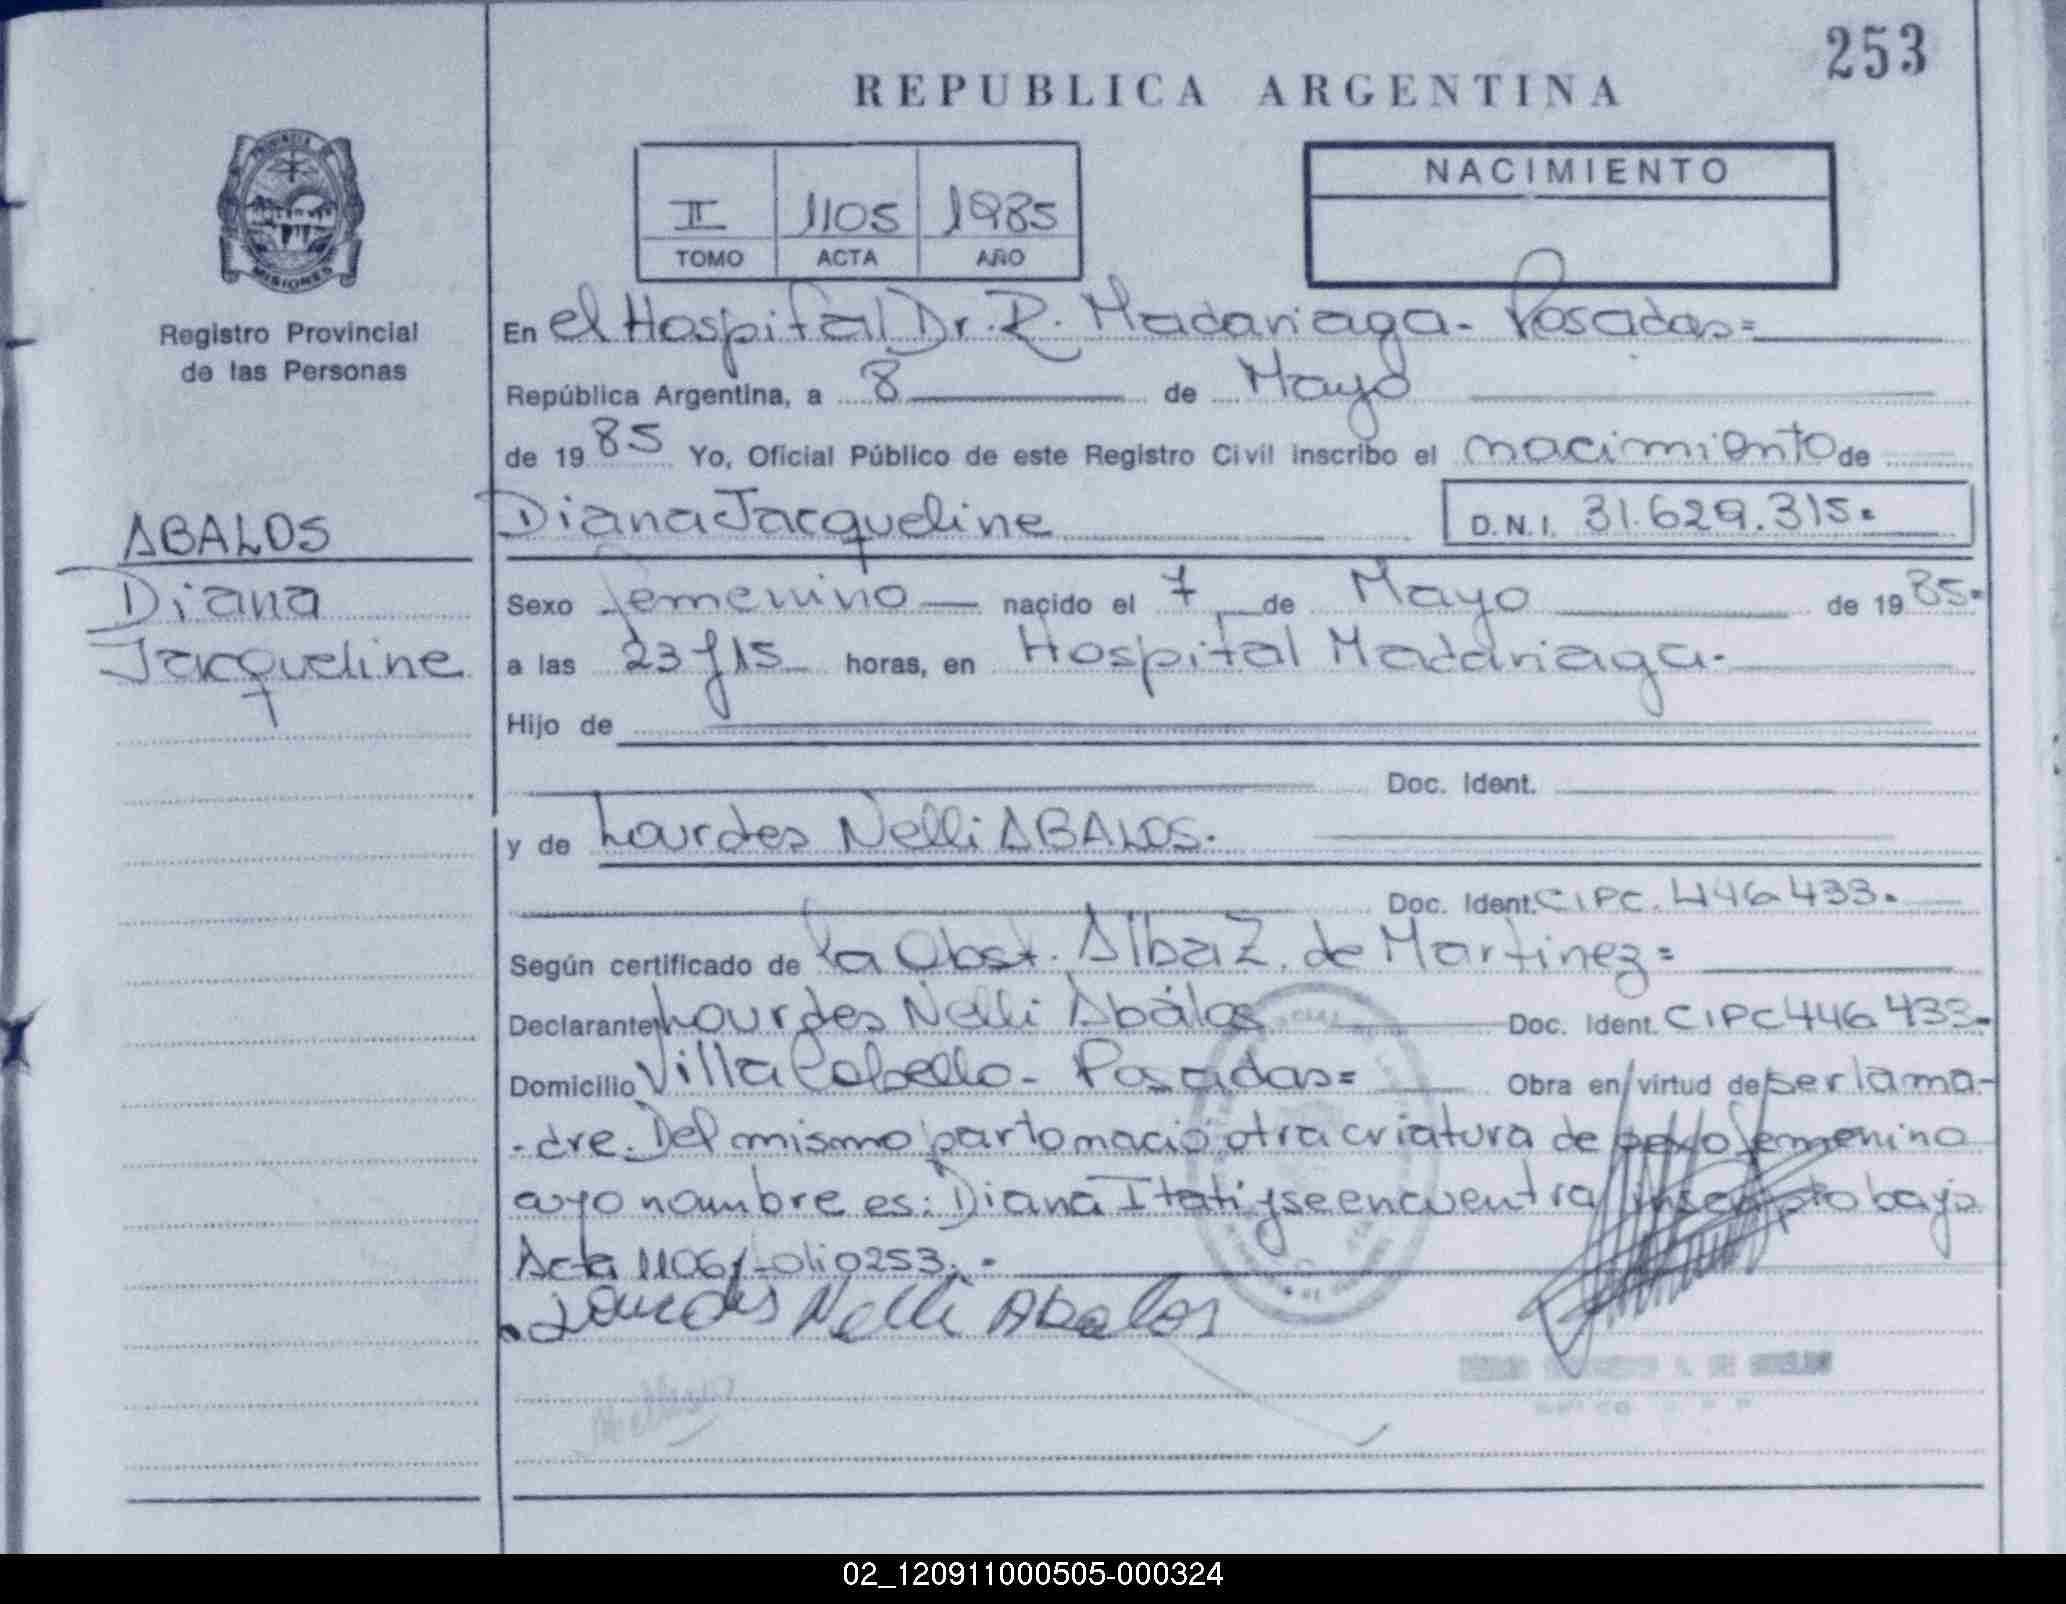 253
REPUBLICA ARGENTINA
PROVINCIA DE
MISIONES
Registro Provincial
de las Personas
II 1105 1985
TOMO ACTA AÑO
NACIMIENTO
En el Hospital Dr. R. Madariaga - Posadas=
República Argentina, a 8 de Mayo
de 1985 Yo, Oficial Público de este Registro Civil inscribo el nacimiento de
ABALOS
Diana
Jacqueline
Diana Jacqueline D.N.I. 31.629.315.
Sexo femenino — nacido el 7 de Mayo de 1985=
a las 23 y 15 horas, en Hospital Madariaga.
Hijo de
Doc. Ident.
y de Lourdes Nelli ABALOS.
Doc. Ident. CIPC. 446433.
Según certificado de la Obst. Alba Z. de Martinez=
Declarante Lourdes Nelli Abálos Doc. Ident. CIPC 446433=
Domicilio Villa Cabello - Posadas= Obra en virtud de ser la ma-
-dre. Del mismo parto nació otra criatura de sexo femenino
cuyo nombre es: Diana Itati y se encuentra inscripto bajo
Acta 1106 folio 253. -
Lourdes Nelli Abalos
02_120911000505-000324